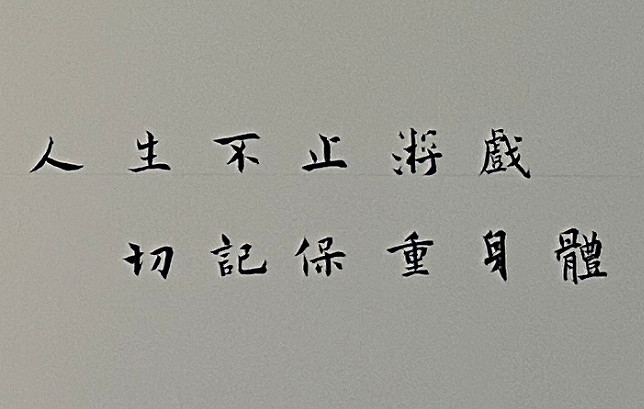 人生不止游戲
切記保重身體